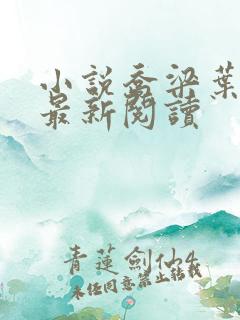 小說喬梁葉
最新閱讀
青蓮劍仙4
未經同意禁止轉載